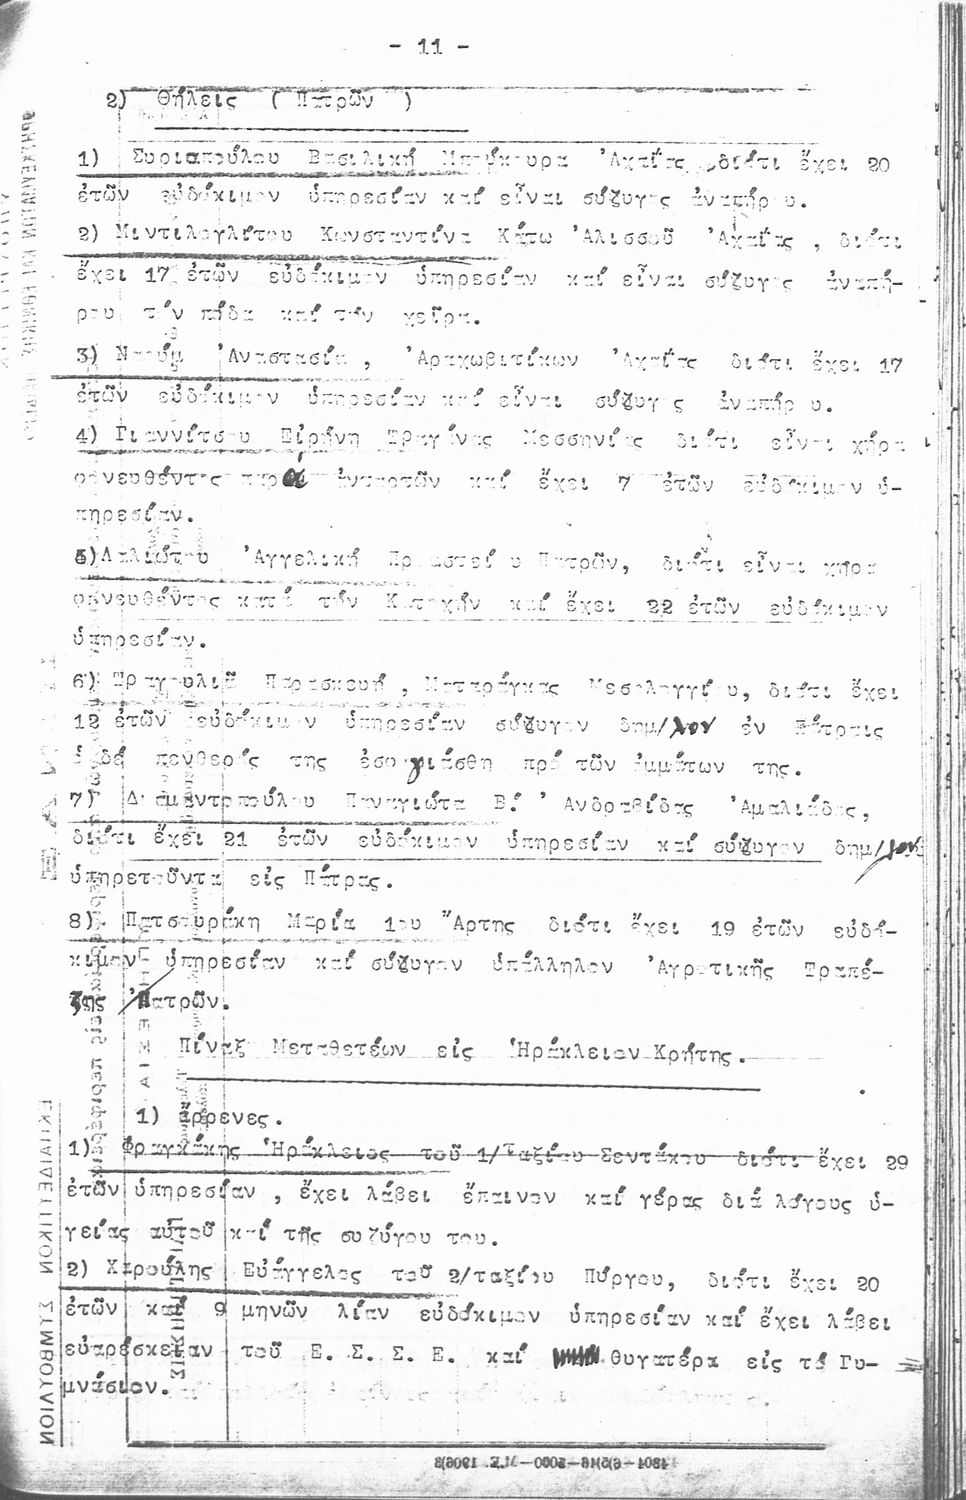 - 11 -
2) Θήλεις ( Πατρῶν )
1) Συριαπούλου Βασιλική Μπούκουρα Ἀχαΐας διότι ἔχει 20
ἐτῶν εὐδόκιμον ὑπηρεσίαν καί εἶναι σύζυγος ἀναπήρου.
2) Κωνσταντίνα Κάτω Ἀλισσοῦ Ἀχαΐας , διότι
ἔχει 17 ἐτῶν εὐδόκιμον ὑπηρεσίαν καί εἶναι σύζυγος ἀναπή-
ρου τόν πόδα καί τήν χεῖρα.
3) Ναούμ Ἀναστασία , Ἀραχωβιτίκων Ἀχαΐας διότι ἔχει 17
ἐτῶν εὐδόκιμον ὑπηρεσίαν καί εἶναι σύζυγος ἀναπήρου.
4) Γιαννίτσου Εἰρήνη Τραγάνας Μεσσηνίας διότι εἶναι χήρα
φονευθέντος παρά ἀνταρτῶν καί ἔχει 7 ἐτῶν εὐδόκιμον ὑ-
πηρεσίαν.
5) Λαλιώτου Ἀγγελική Προαστείου Πατρῶν, διότι εἶναι χήρα
φονευθέντος κατά τήν Κατοχήν καί ἔχει 22 ἐτῶν εὐδόκιμον
ὑπηρεσίαν.
6) Παρασκευή , Ματαράγκας Μεσολογγίου, διότι ἔχει
12 ἐτῶν εὐδόκιμον ὑπηρεσίαν σύζυγον δημ/λον ἐν Πάτραις
ὁ δέ πενθερός της ἐσφαγιάσθη πρό τῶν ὀμμάτων της.
7) Διαμαντοπούλου Παναγιώτα Β. Ἀνδραβίδας Ἀμαλιάδας,
διότι ἔχει 21 ἐτῶν εὐδόκιμον ὑπηρεσίαν καί σύζυγον δημ/λον
ὑπηρετοῦντα εἰς Πάτρας.
8) Πατσουράκη Μαρία 1ου Ἄρτης διότι ἔχει 19 ἐτῶν εὐδό-
κιμον ὑπηρεσίαν καί σύζυγον ὑπάλληλον Ἀγροτικῆς Τραπέ-
ζης Πατρῶν.
Πίναξ Μεταθετέων εἰς Ἡράκλειον Κρήτης.
1) ἄρρενες.
1) Φραγκάκης Ἡράκλειος τοῦ 1/ταξίου Σεντάκου διότι ἔχει 29
ἐτῶν ὑπηρεσίαν , ἔχει λάβει ἔπαινον καί γέρας διά λόγους ὑ-
γείας αὐτοῦ καί τῆς συζύγου του.
2) Χαρούλης Εὐάγγελος τοῦ 2/ταξίου Πύργου, διότι ἔχει 20
ἐτῶν καί 9 μηνῶν λίαν εὐδόκιμον ὑπηρεσίαν καί ἔχει λάβει
εὐαρέσκειαν τοῦ Ε. Σ. Σ. Ε. καί θυγατέρα εἰς τό Γυ-
μνάσιον.
ΕΚΠΑΙΔΕΥΤΙΚΟΝ ΣΥΜΒΟΥΛΙΟΝ